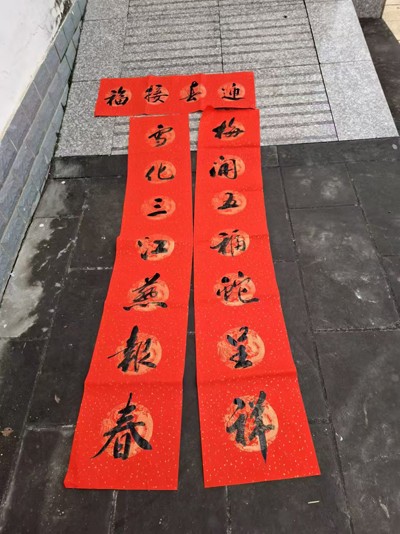 迎春接福
梅開五福蛇呈祥
雪化三江燕報春